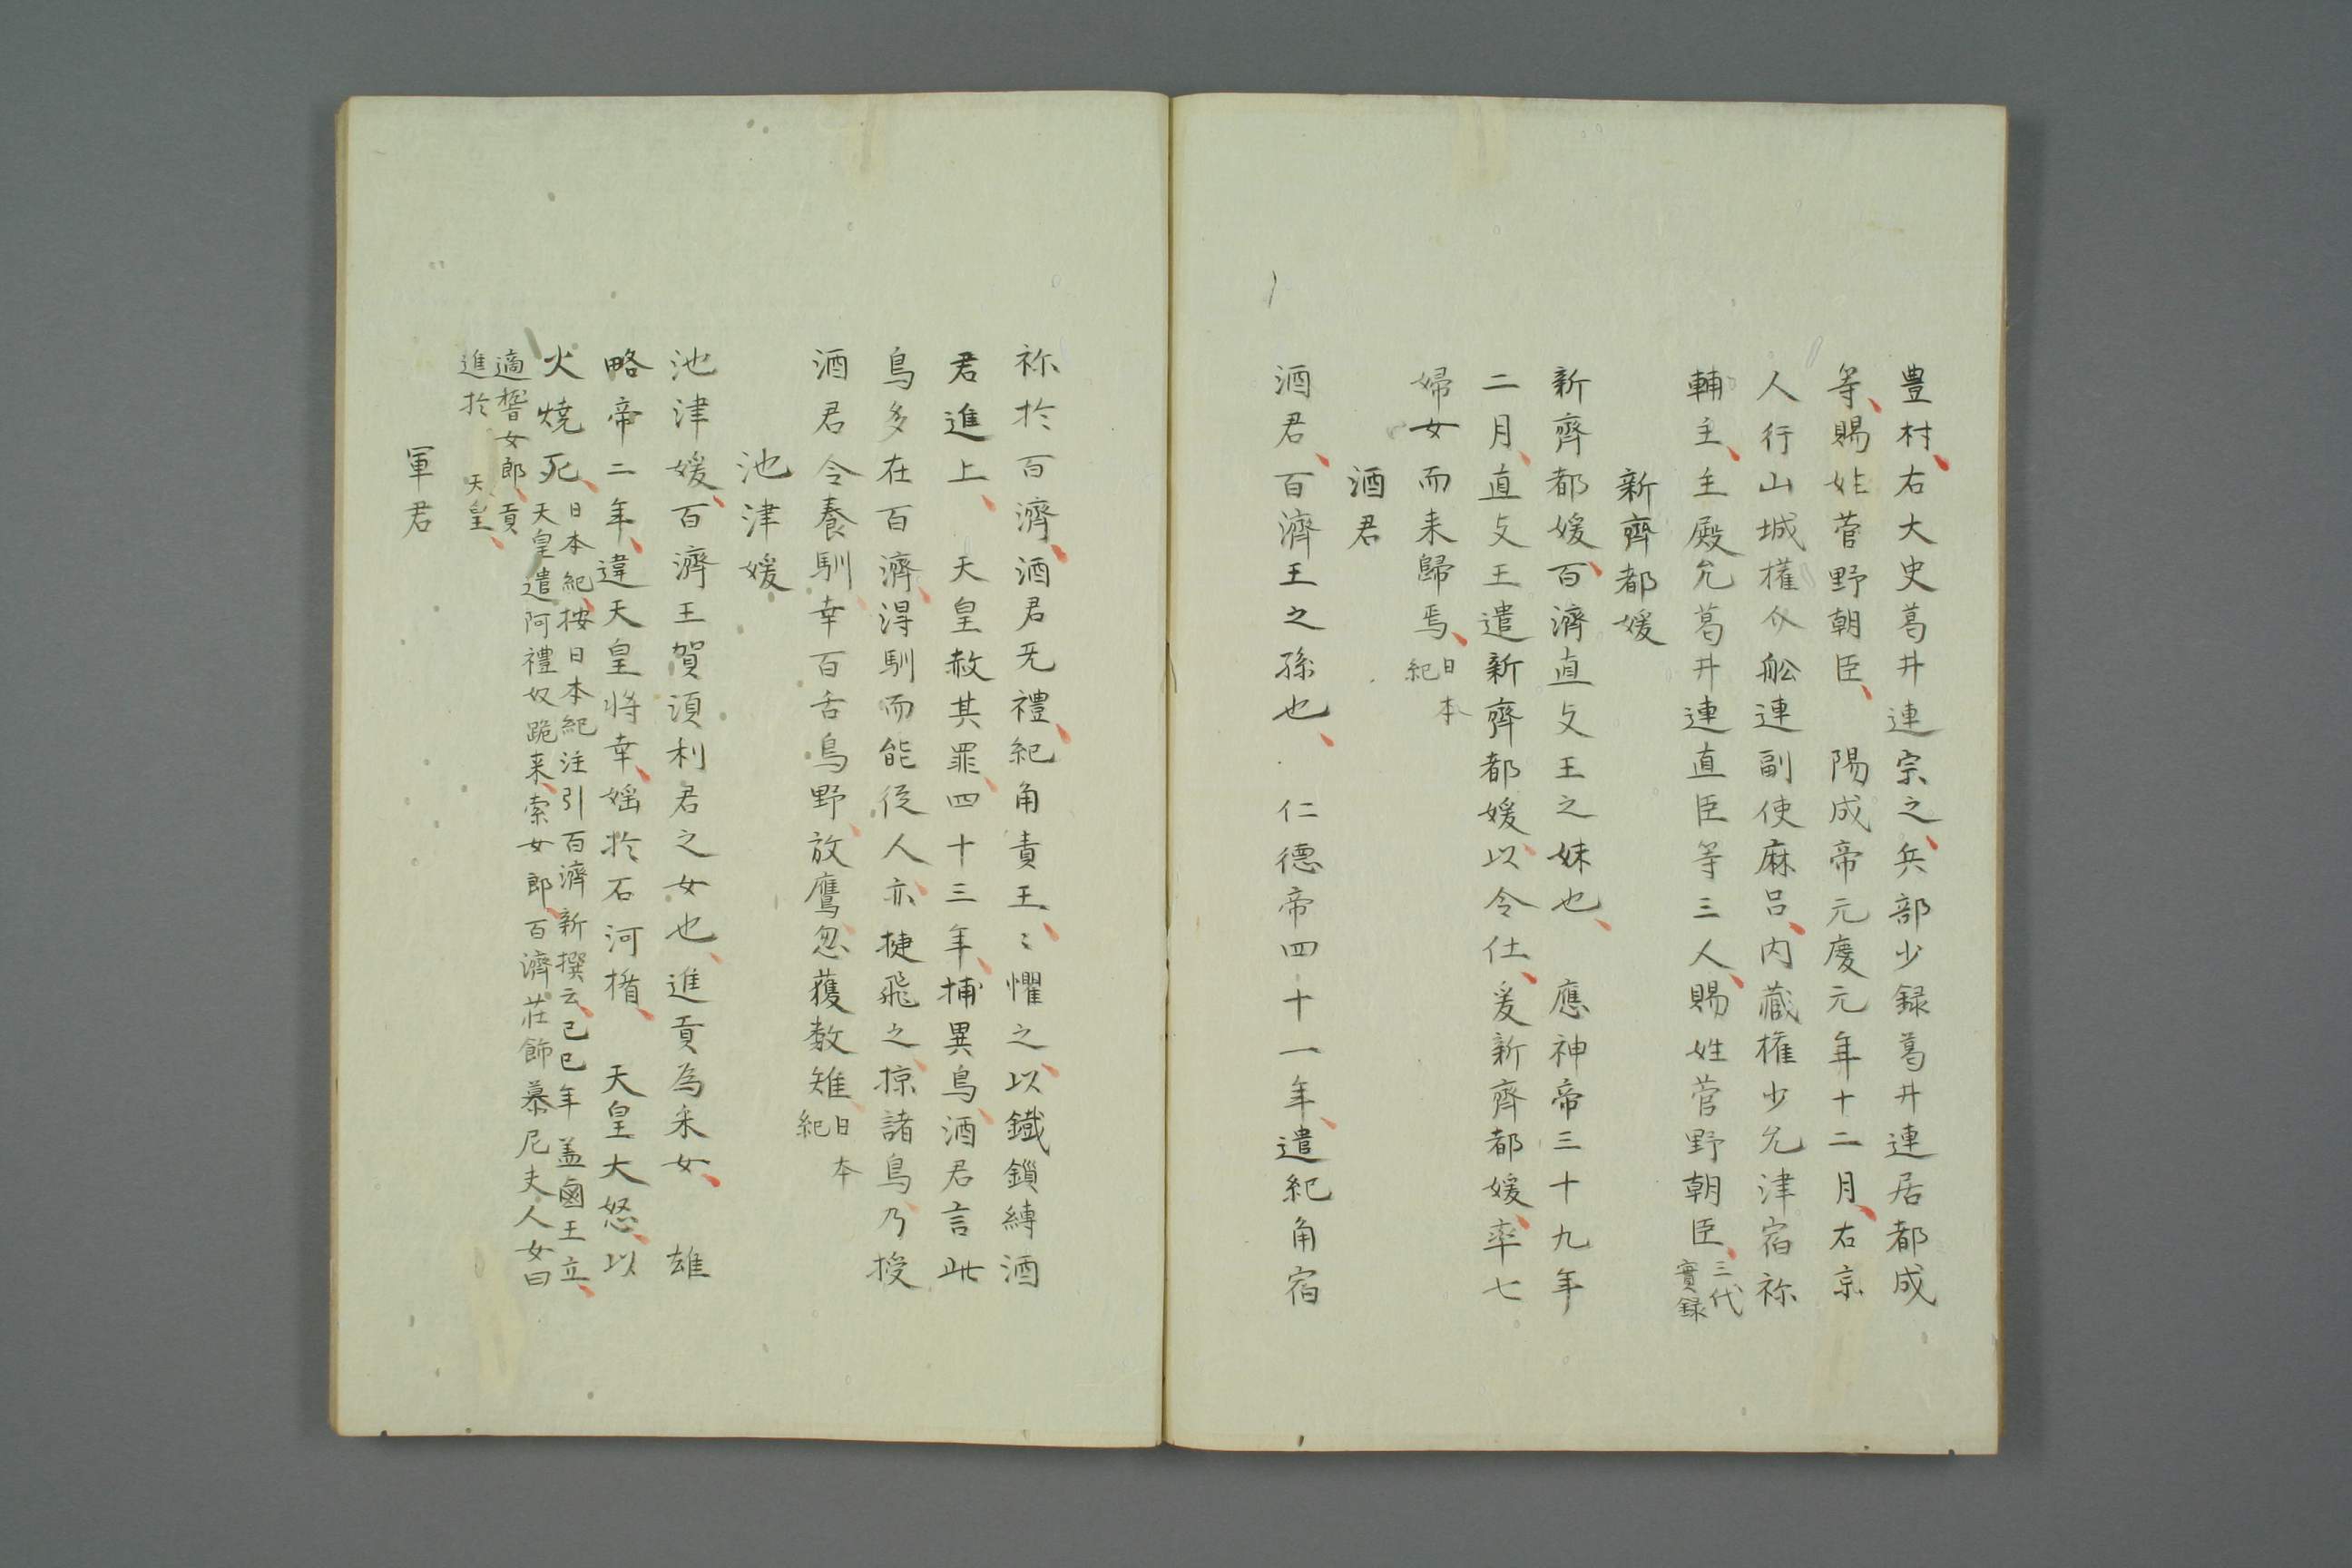 豊村右大史葛井連宗之兵部少録葛井連居都成
等賜姓菅野朝臣　陽成帝元慶元年十二月右京
人行山城権介舩連副使麻呂内藏権少允津宿祢
輔主主殿允葛井連直臣等三人賜姓菅野朝臣三代
實録
新齊都媛
新齊都媛百濟直支王之妹也　應神帝三十九年
二月直支王遣新齊都媛以令仕爰新齊都媛率七
婦女而来歸焉日本
紀
酒君
酒君百濟王之孫也　仁德帝四十一年遣紀角宿
祢於百濟酒君无禮紀角責王〻懼之以鐵鎖縛酒
君進上　天皇赦其罪四十三年捕異鳥酒君言此
鳥多在百濟得馴而能從人亦捷飛之掠諸鳥乃授
酒君令養馴幸百舌鳥野放鷹忽獲数雉日本
紀
池津媛
池津媛百濟王賀須利君之女也進貢為采女　雄
略帝二年違天皇将幸婬於石河楯　天皇大怒以
火焼死日本紀按日本紀注引百濟新撰云己巳年盖鹵王立
天皇遣阿禮奴跪来索女郎百濟莊飾慕尼夫人女曰
適稽女郎貢
進於　天皇
軍君